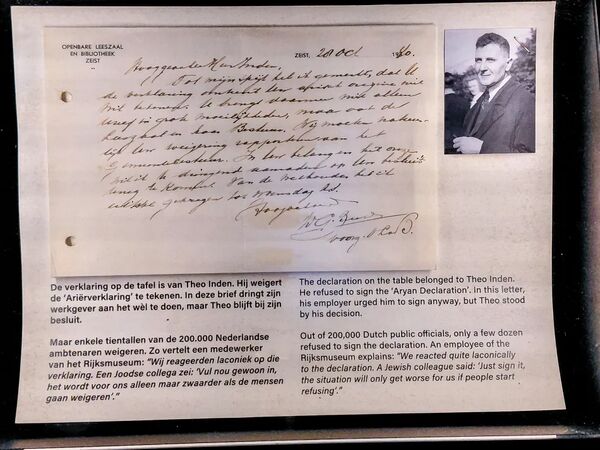 OPENBARE LEESZAAL
EN BIBLIOTHEEK
ZEIST
ZEIST, 28 Oct 1940.
Hooggeachte Heer Inden,
Tot mijn spijt heb ik gemerkt, dat U
de verklaring omtrent
niet alleen
U zelf in groote moeilijkheden, maar ook de
Leeszaal en haar Bestuur. Wij moeten
weigering rapporteeren aan het
Gemeentebestuur. In Uw belang en het onze
wil ik U dringend aanraden op Uw
terug te komen. Van de Wethouder heb ik
uitstel gekregen tot Woensdag a.s.
Hoogachtend
De verklaring op de tafel is van Theo Inden. Hij weigert
de ‘Ariërverklaring’ te tekenen. In deze brief dringt zijn
werkgever aan het wèl te doen, maar Theo blijft bij zijn
besluit.
Maar enkele tientallen van de 200.000 Nederlandse
ambtenaren weigeren. Zo vertelt een medewerker
van het Rijksmuseum: “Wij reageerden laconiek op die
verklaring. Een Joodse collega zei: ‘Vul nou gewoon in,
het wordt voor ons alleen maar zwaarder als de mensen
gaan weigeren’.”
The declaration on the table belonged to Theo Inden.
He refused to sign the ‘Aryan Declaration’. In this letter,
his employer urged him to sign anyway, but Theo stood
by his decision.
Out of 200,000 Dutch public officials, only a few dozen
refused to sign the declaration. An employee of the
Rijksmuseum explains: “We reacted quite laconically
to the declaration. A Jewish colleague said: ‘Just sign it,
the situation will only get worse for us if people start
refusing’.”